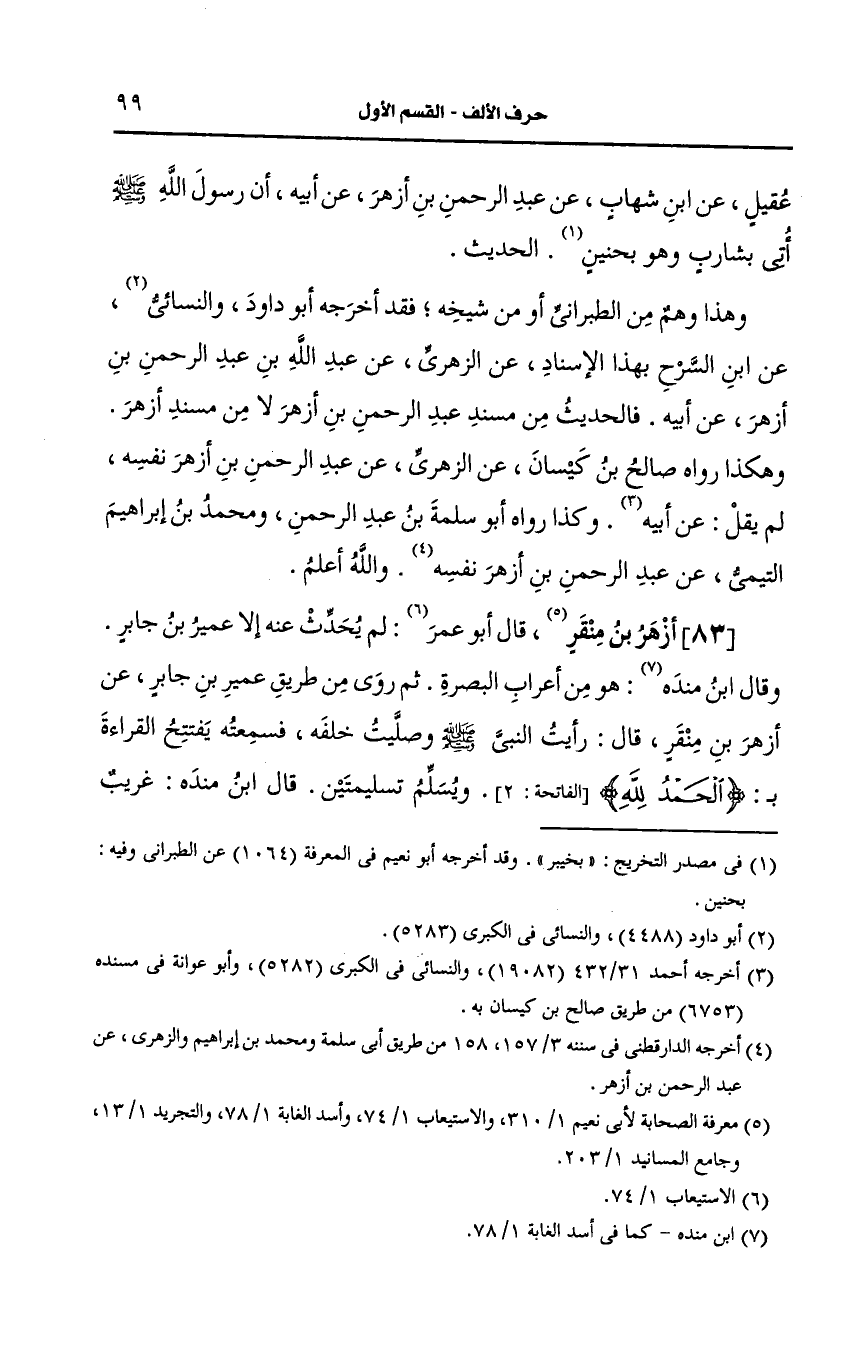 حرف الألف - القسم الأول ٩٩
عُقيلٍ ، عن ابنِ شهابٍ ، عن عبدِ الرحمنِ بنِ أزهرَ ، عن أبيه ، أن رسولَ اللَّهِ ﷺ
أُتِى بشاربٍ وهو بحنينٍ(١) . الحديث .
وهذا وهمٌ مِن الطبرانىِّ أو من شيخِه ؛ فقد أخرَجه أبو داودَ ، والنسائىُّ(٢) ،
عن ابنِ السَّرْحِ بهذا الإسنادِ ، عن الزهرىِّ ، عن عبدِ اللَّهِ بنِ عبدِ الرحمنِ بنِ
أزهرَ ، عن أبيه . فالحديثُ مِن مسندِ عبدِ الرحمنِ بنِ أزهرَ لا مِن مسندِ أزهرَ .
وهكذا رواه صالحُ بنُ كَيْسانَ ، عن الزهرىِّ ، عن عبدِ الرحمنِ بنِ أزهرَ نفسِه ،
لم يقلْ : عن أبيه(٣) . وكذا رواه أبو سلمةَ بنُ عبدِ الرحمنِ ، ومحمدُ بنُ إبراهيمَ
التيمىُّ ، عن عبدِ الرحمنِ بنِ أزهرَ نفسِه(٤) . واللَّهُ أعلمُ .
[٨٣] أزْهَرُ بنُ مِنْقَرٍ(٥) ، قال أبو عمرَ(٦) : لم يُحَدِّثْ عنه إلا عميرُ بنُ جابرٍ .
وقال ابنُ منده(٧) : هو مِن أعرابِ البصرةِ . ثم روَى مِن طريقِ عميرِ بنِ جابرٍ ، عن
أزهرَ بنِ مِنْقَرٍ ، قال : رأيتُ النبىَّ ﷺ وصلَّيتُ خلفَه ، فسمِعتُه يَفتتِحُ القراءةَ
بـ : ﴿ٱلْحَمْدُ لِلَّهِ﴾ [الفاتحة : ٢] . ويُسَلِّمُ تسليمتَيْن . قال ابنُ منده : غريبٌ
(١) فى مصدر التخريج : « بخيبر » . وقد أخرجه أبو نعيم فى المعرفة (١٠٦٤) عن الطبرانى وفيه :
بحنين .
(٢) أبو داود (٤٤٨٨) ، والنسائى فى الكبرى (٥٢٨٣) .
(٣) أخرجه أحمد ٤٣٢/٣١ (١٩٠٨٢) ، والنسائى فى الكبرى (٥٢٨٢) ، وأبو عوانة فى مسنده
(٦٧٥٣) من طريق صالح بن كيسان به .
(٤) أخرجه الدارقطنى فى سننه ٣/ ١٥٧، ١٥٨ من طريق أبى سلمة ومحمد بن إبراهيم والزهرى ، عن
عبد الرحمن بن أزهر .
(٥) معرفة الصحابة لأبى نعيم ١/ ٣١٠، والاستيعاب ١/ ٧٤، وأسد الغابة ١/ ٧٨، والتجريد ١/ ١٣،
وجامع المسانيد ١/ ٢٠٣.
(٦) الاستيعاب ١/ ٧٤.
(٧) ابن منده - كما فى أسد الغابة ١/ ٧٨.